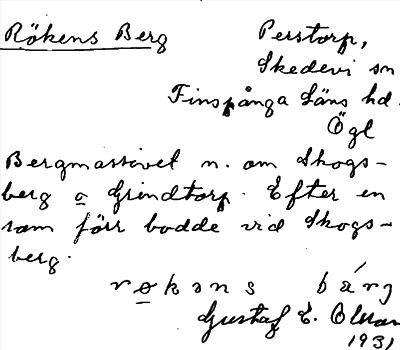 Rökens Berg
Perstorp,
Skedevi sn
Finspånga Läns hd.
Ögl
Bergmassivet n. om Skogs-
berg o Grindtorp. Efter en
som förr bodde vid Skogs-
berg.
røkəns bárj
Gustaf E. Olsson
1931